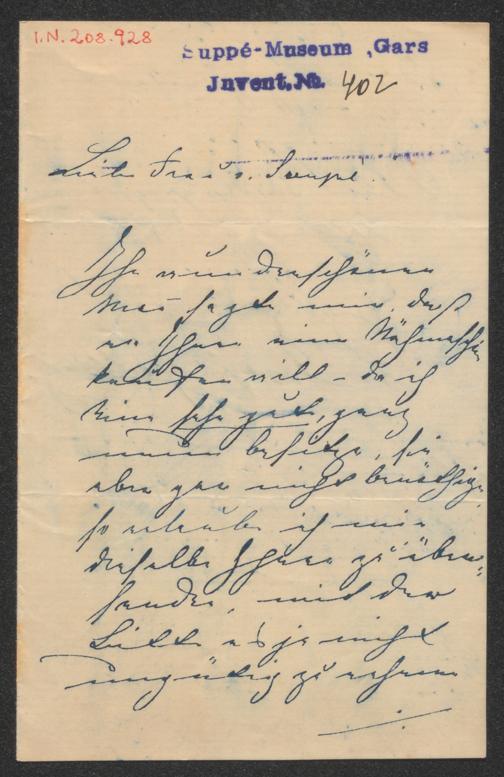 I.N. 208.928
Suppé-Museum, Gars
Invent. No. 402
Liebe Frau v. Suppé.
Ihr wunderschöner
sagte mir, daß
er Ihnen eine Nähmaschine
kaufen will – da ich
eine sehr gute, ganz
neue besitze, sie
aber gar nicht benöthige,
so erlaube ich mir
dieselbe Ihnen zu über-
senden, mit der
Bitte es ja nicht
ungütig zu nehmen